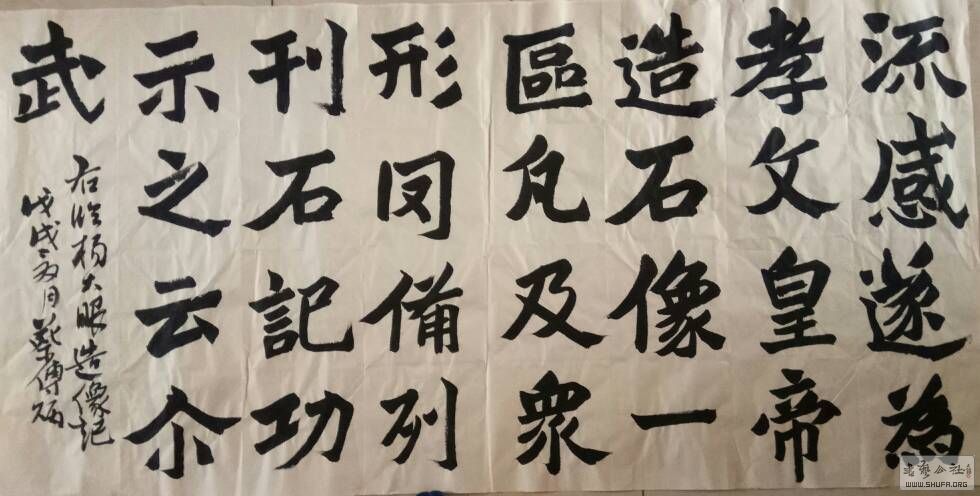 流感遂為
孝文皇帝
造石像一
區凡及衆
形罔備列
刊石記功
示之云尒
武
右临楊大眼造像記
戊戌 月
書藝公社
WWW.SHUFA.ORG